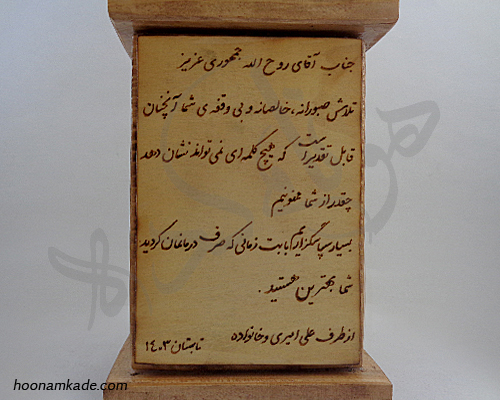 جناب آقای روح الله جمهوری عزیز
تلاش صبورانه، خالصانه و بی وقفه ی شما آنچنان
قابل تقدیر است که هیچ کلمه ای نمی تواند نشان دهد
چقدر از شما ممنونیم
بسیار سپاسگزاریم بابت زمانی که صرف درمانمان کردید
شما بهترین هستید.
از طرف علی امیری و خانواده
تابستان ۱۴۰۳
hoonamkade.com